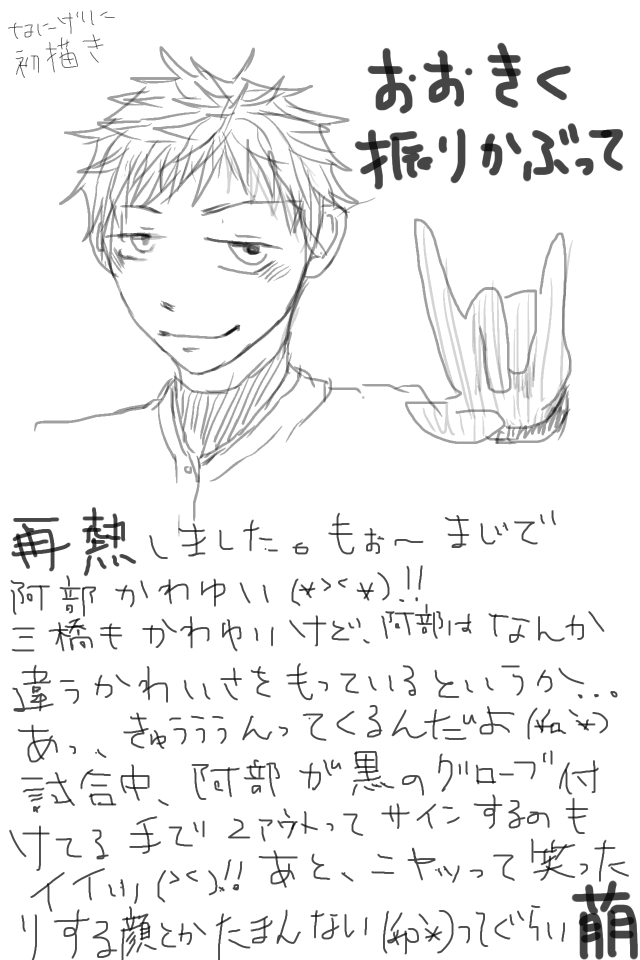 なにげに
初描き
おおきく
振りかぶって
再熱しました。もぉ〜まじで
阿部かわゆい(*><*)!!
三橋もかわゆいけど、阿部はなんか
違うかわいさをもっているというか...
あっ、きゅうううんってくるんだよ(*´д`*)
試合中、阿部が黒のグローブ付
けてる手で2アウトってサインするのも
イイ!!!(><)!!あと、ニヤッって笑った
りする顔とかたまんない(*´р`*)ってぐらい萌